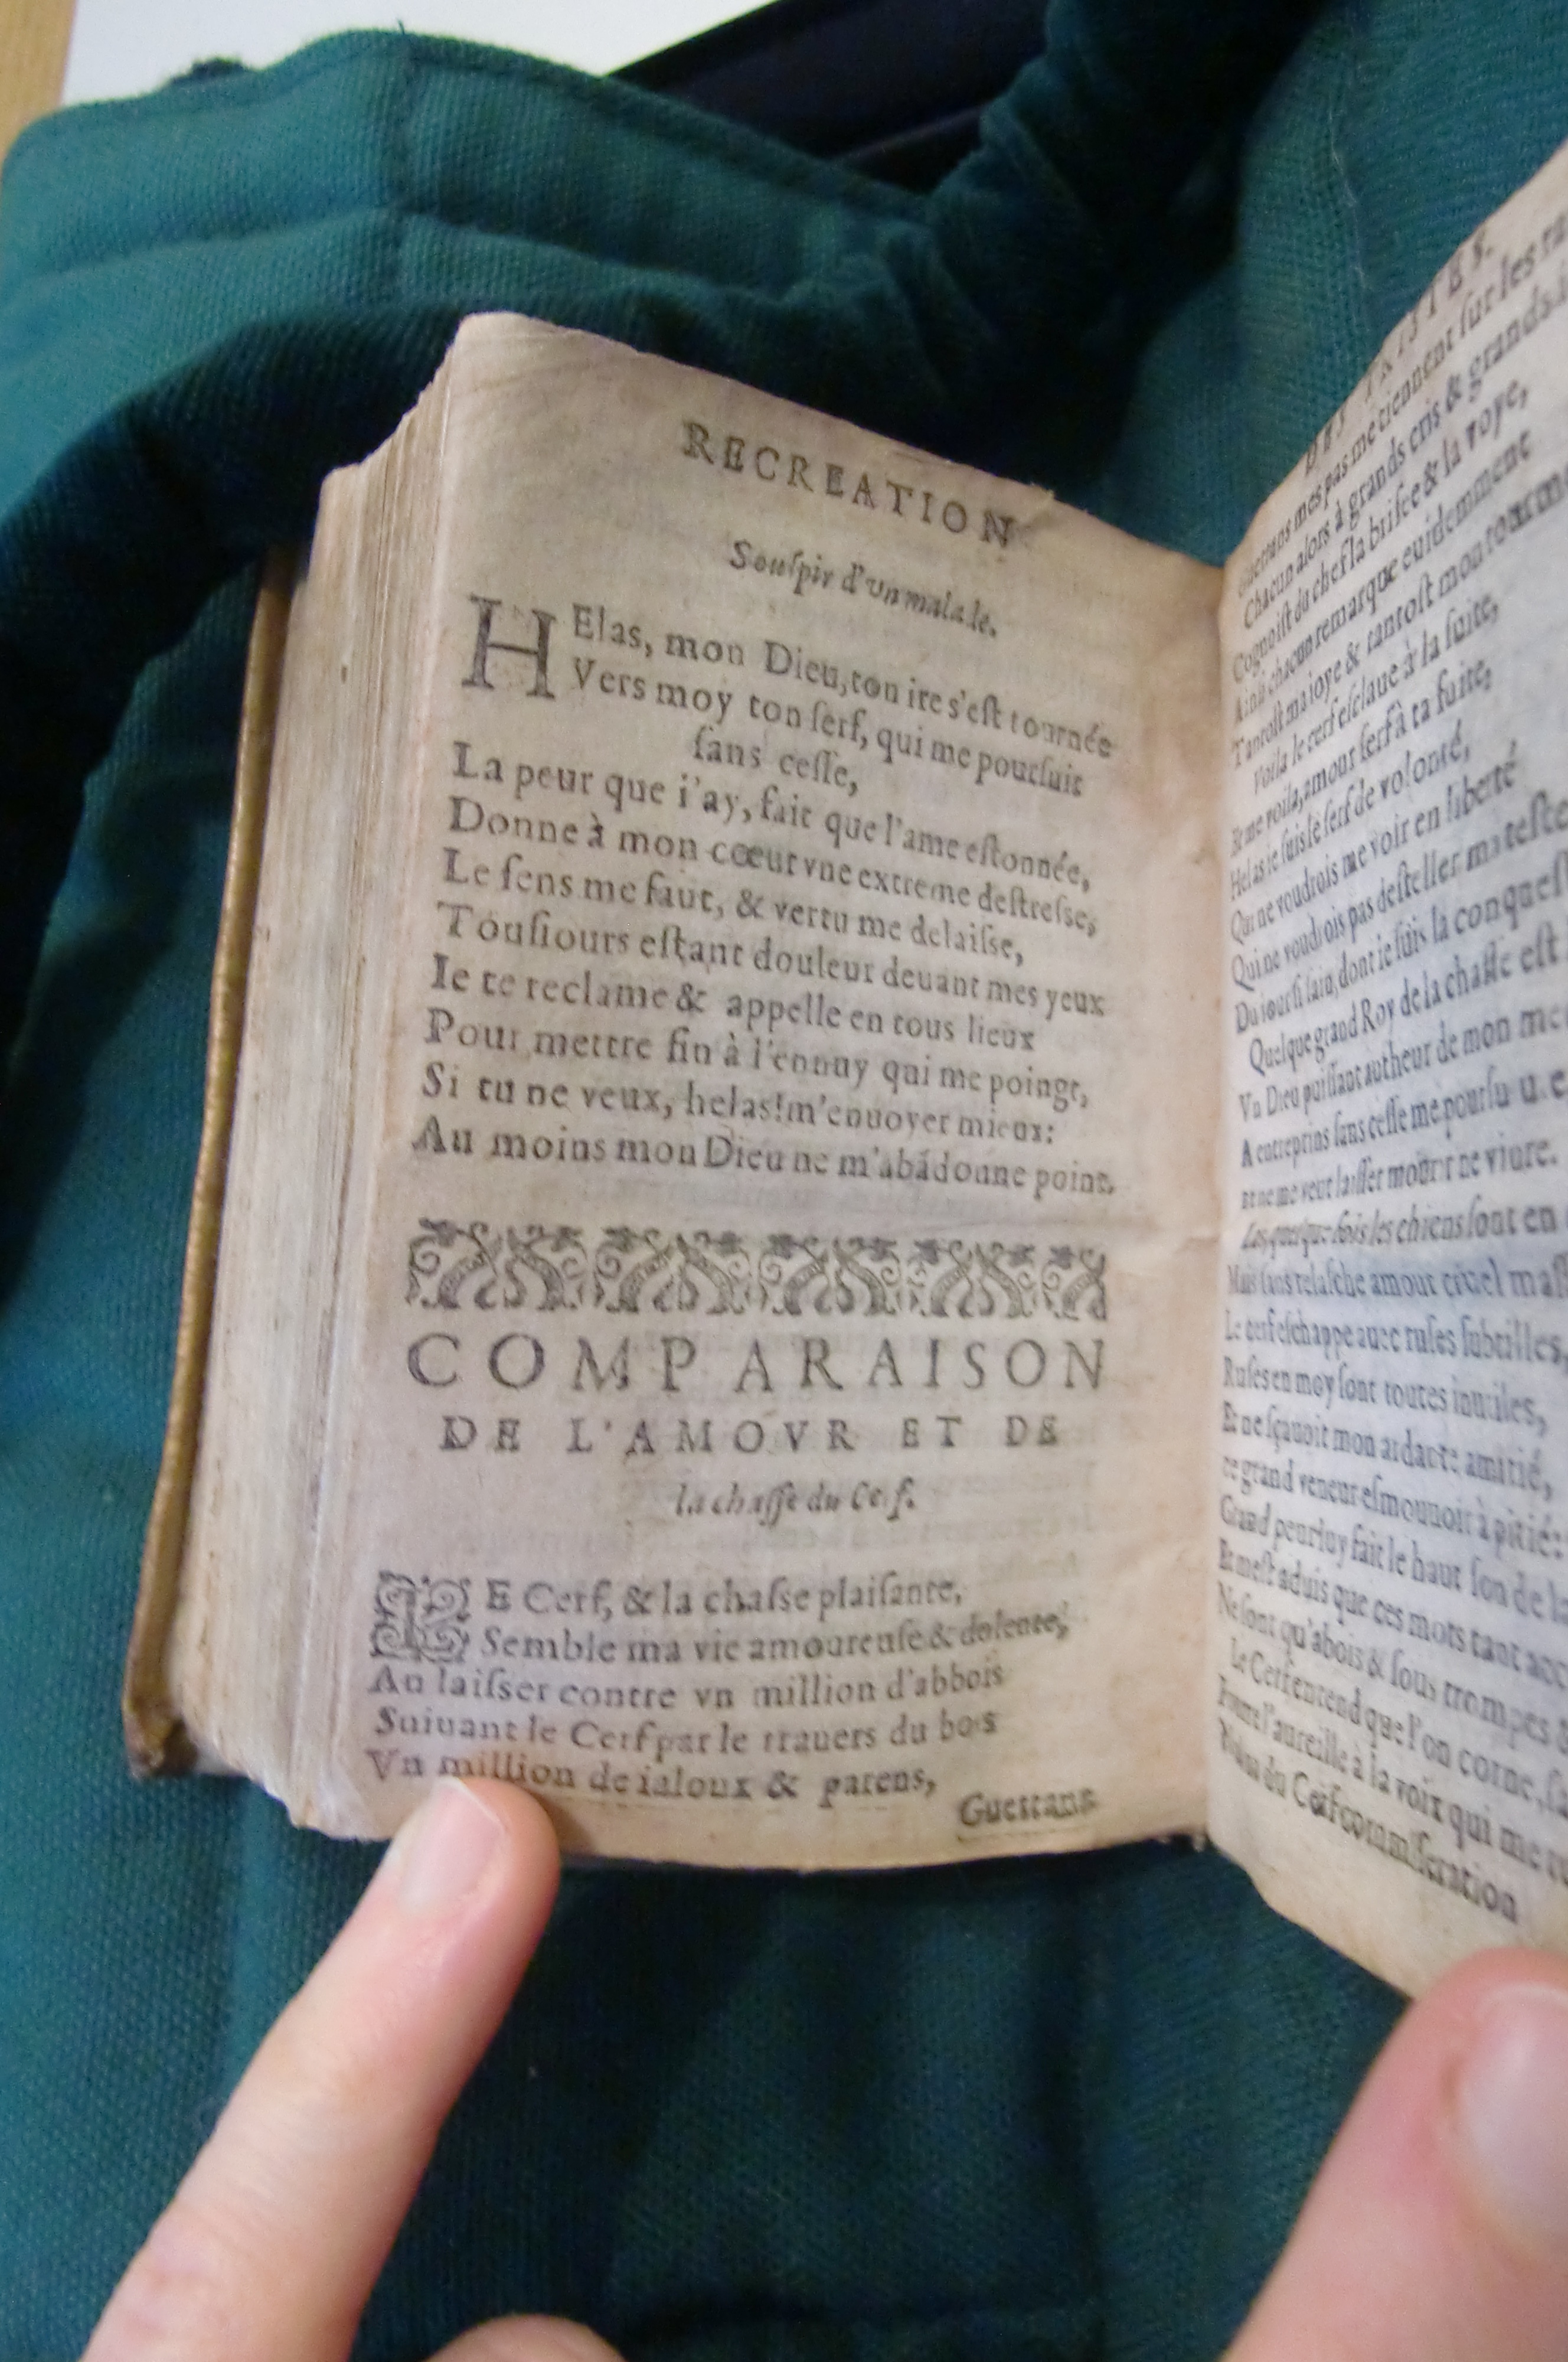 RECREATION
Souſpir d'vn malade.
HElas, mon Dieu, ton ire s'eſt tournée
Vers moy ton ſerf, qui me pourſuit
ſans ceſſe,
La peur que i'ay, fait que l'ame eſtonnée,
Donne à mon cœur vne extreme deſtreſse,
Le ſens me faut, & vertu me delaiſse,
Touſiours eſtant douleur deuant mes yeux
Ie te reclame & appelle en tous lieux
Pour mettre fin à l'ennuy qui me poingt,
Si tu ne veux, helas! m'enuoyer mieux:
Au moins mon Dieu ne m'abãdonne point.
COMPARAISON
DE L'AMOVR ET DE
la chaſſe du Cerf.
LE Cerf, & la chaſse plaiſante,
Semble ma vie amoureuſe & dolente,
Au laiſser contre vn million d'abbois
Suiuant le Cerf par le trauers du bois
Vn million de ialoux & parens,
Guettans
DES TRISTES.
Guettans mes pas me tiennent ſur les
Chacun alors à grands cris & grands
Cognoiſt du chef la briſee & la voye,
Ainſi chacun remarque euidemment
Tantoſt ma ioye & tantoſt mon
Voila le cerf eſclaue à la ſuite,
Et me voila, amour ſerf à ta fuite,
Helas ie ſuis le ſerf de volonté,
Qui ne voudrois me voir en liberté
Qui ne voudrois pas deſteller ma teſte
dont ie ſuis la
Quelque grand Roy de la chaſſe eſt
Vn Dieu puiſſant autheur de mon
A entreprins ſans ceſſe me
Et ne me veut laiſſer mourir ne viure.
Las quelque fois les chiens ſont en
Mais ſans relaſche amour cruel
Le cerf eſchappe auec ruſes ſubtilles,
Ruſes en moy ſont toutes inutiles,
Et ne ſçauoit mon ardante amitié,
ce grand veneur eſmouuoir à pitié:
Grand peur luy fait le haut ſon de
Et m'eſt aduis que ces mots tant
Ne ſont qu'abois & ſous trompes
Le Cerf entend que l'on corne,
l'aureille à la voix qui me
du Cerf commiſeration